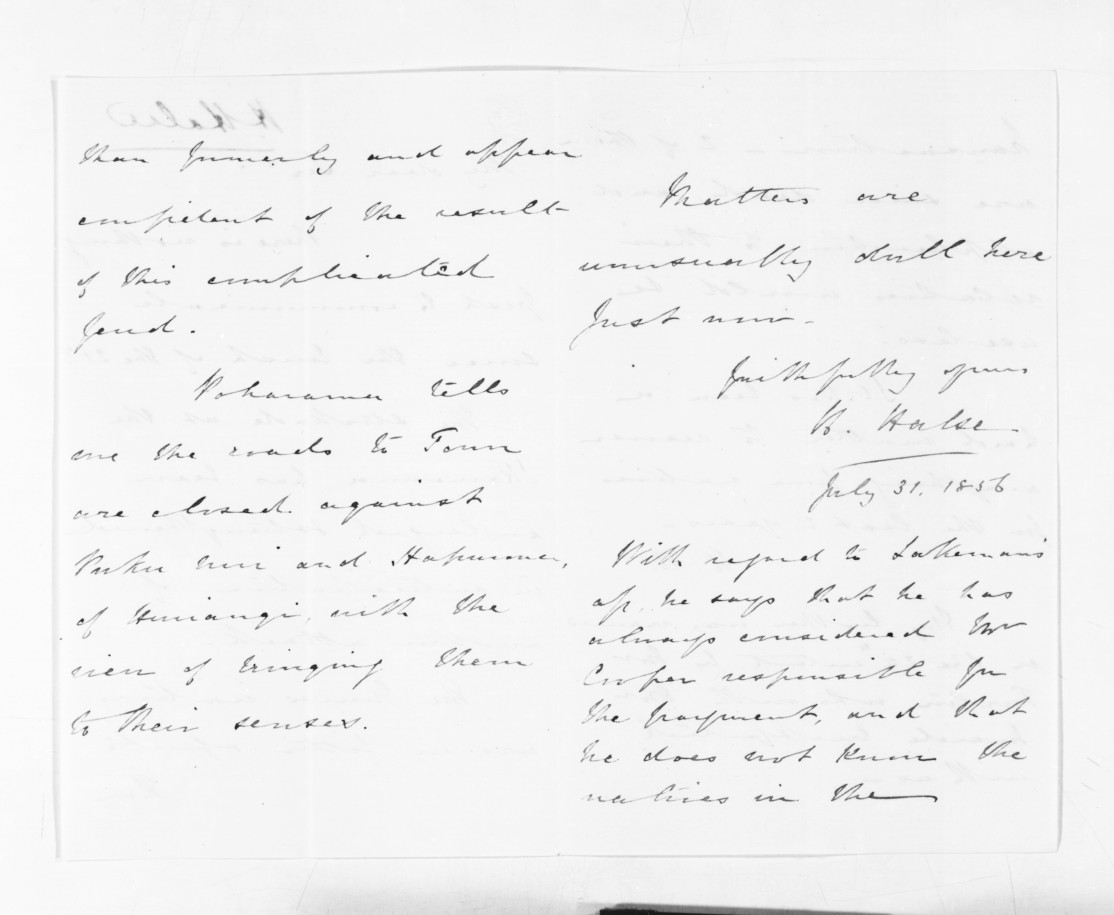 than formerly and appear
competent of the result
of this complicated
feud.
Poharama tells
me the roads to Town
are closed against
and
of Huirangi, with the
view of bringing them
to their senses.
Matters are
unusually dull here
Just now.
Faithfully yours
H. Halse
July 31. 1856
With regard to Lakeman's
he says that he has
always considered Mr
Cooper responsible for
the payment, and that
he does not know the
natives in the